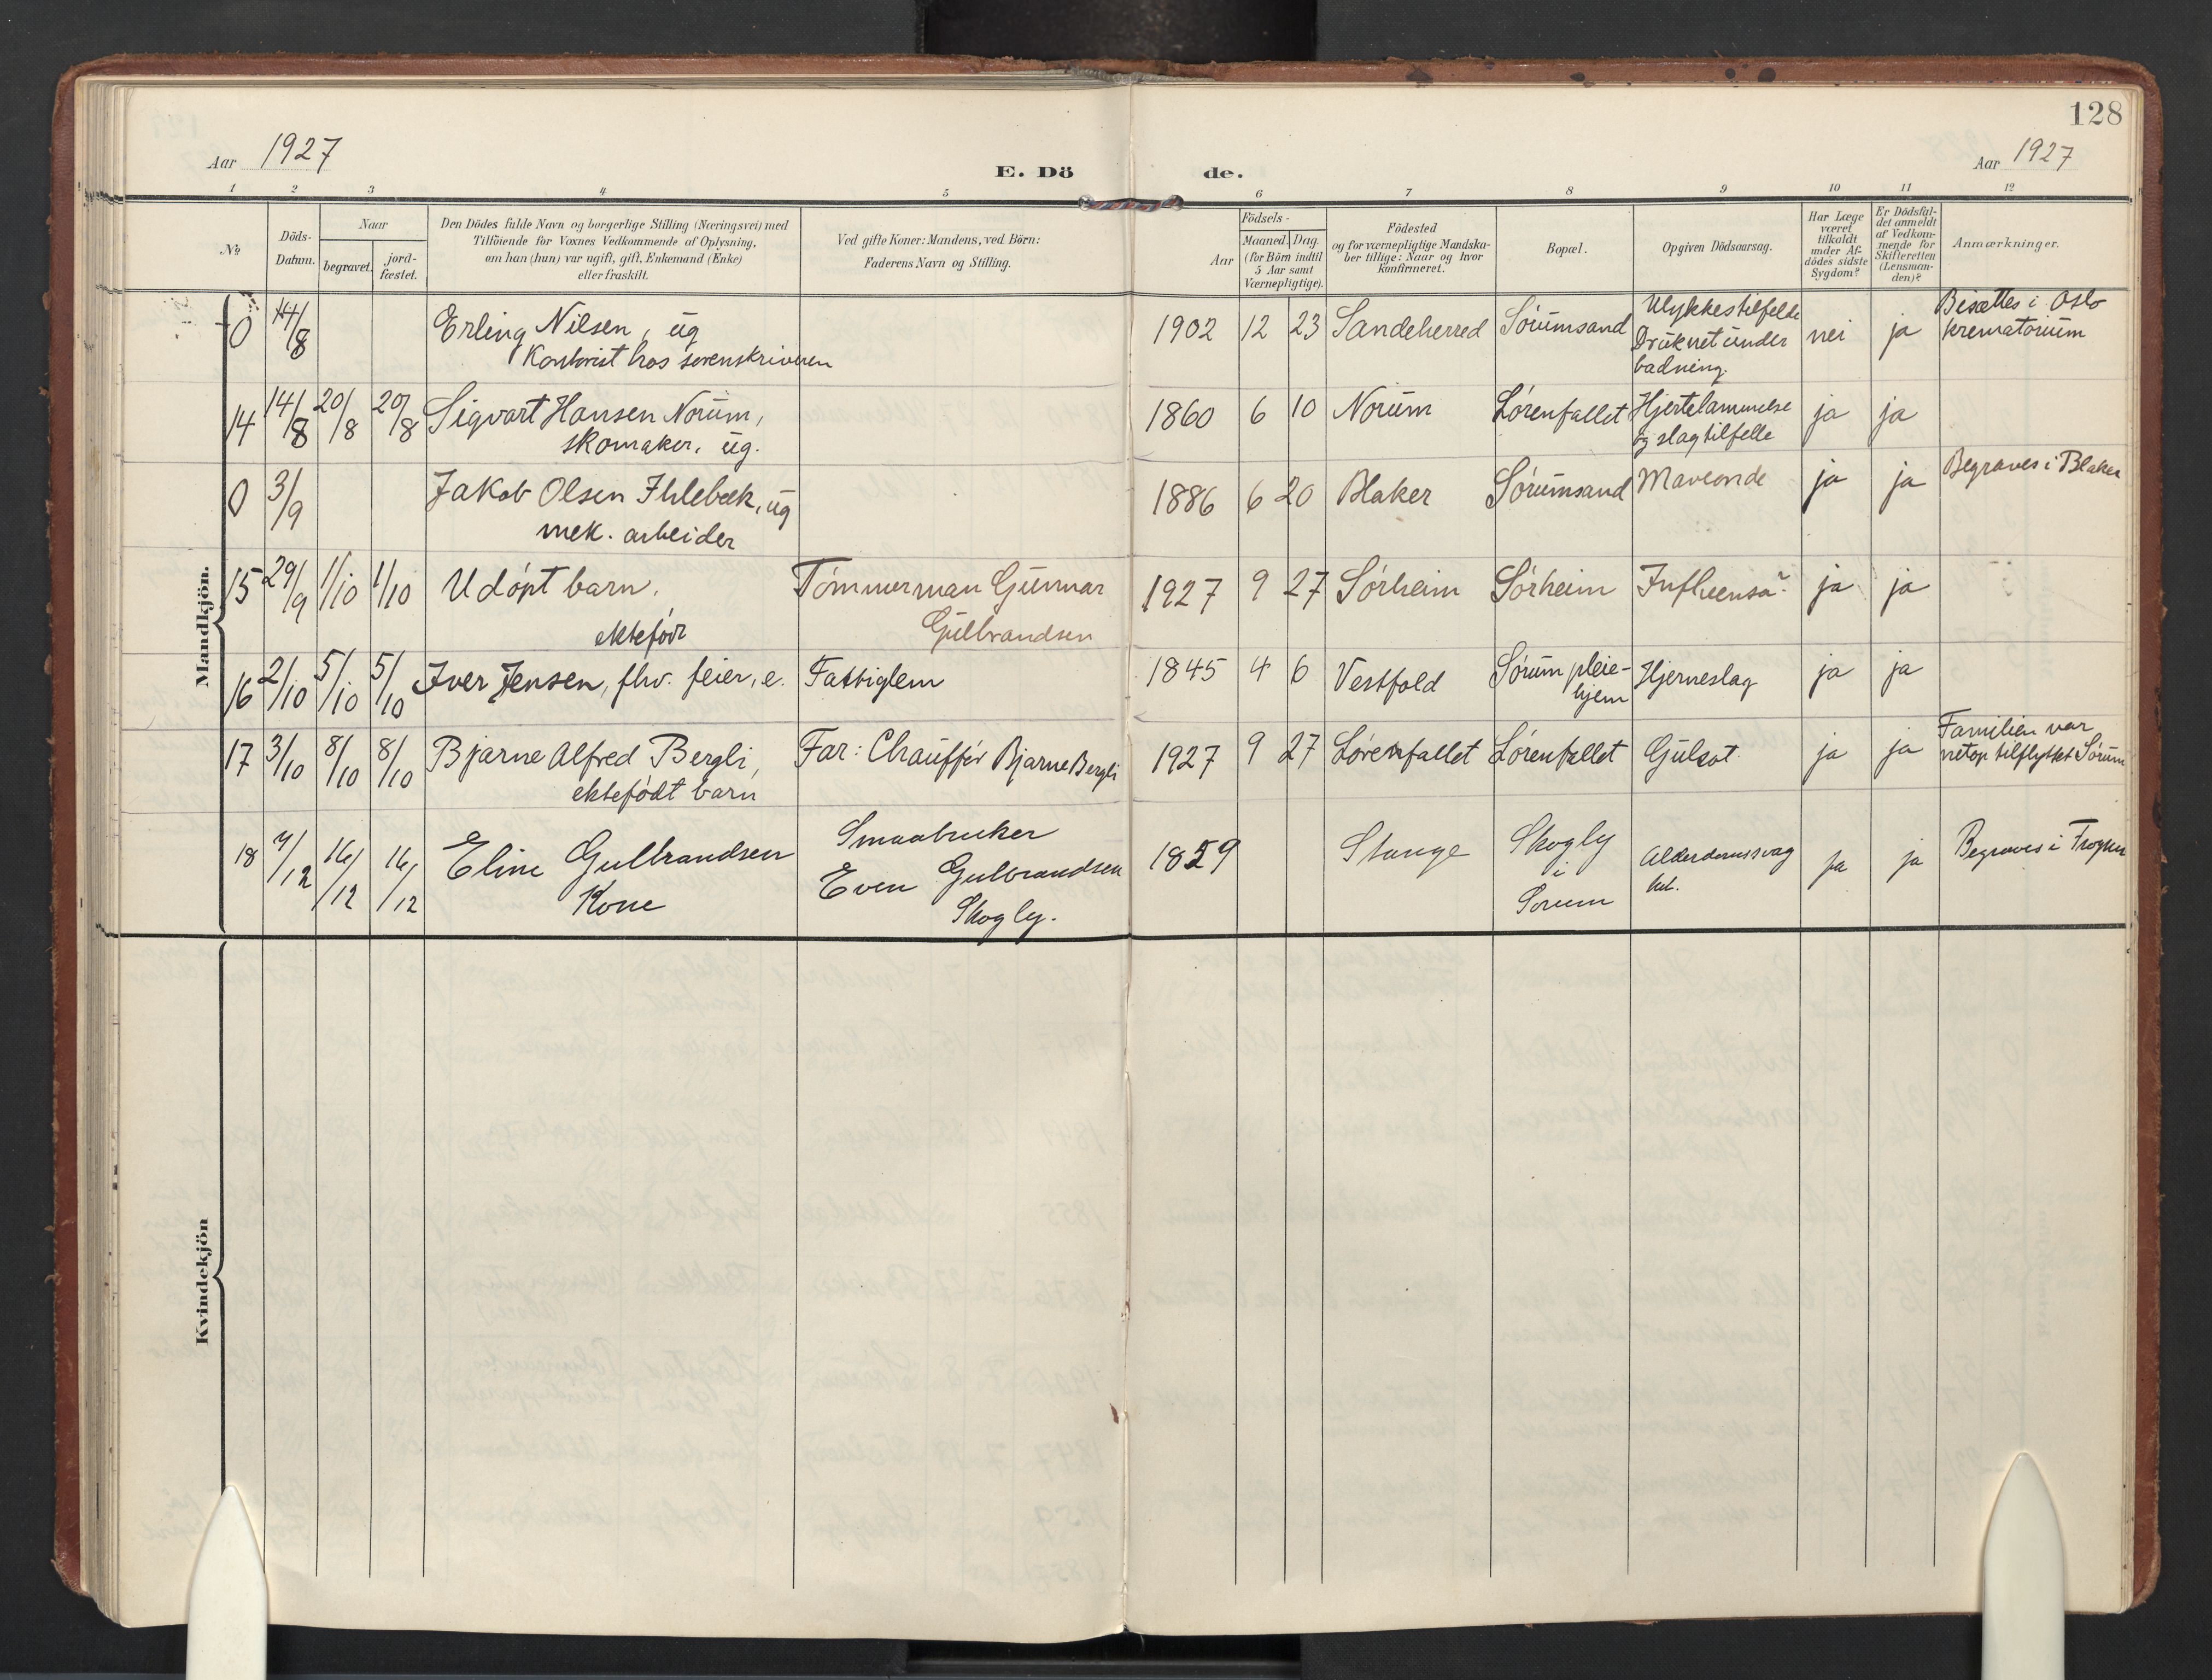 128
Aar 1927
E. Dö de.
Aar 1927
1 2 3 4 5 6 7 8 9 10 11 12
No
Döds-
Datum.
Naar
begravet.
jord-
fæstet.
Den Dödes fulde Navn og borgerlige Stilling (Næringsvei) med
Tilföiende for Voxnes Vedkommende af Oplysning,
om han (hun) var ugift, gift, Enkemand (Enke)
eller fraskilt.
Ved gifte Koner: Mandens, ved Börn:
Faderens Navn og Stilling.
Födsels-
Aar
Maaned. Dag.
(for Börn indtil
5 Aar samt
Værnepligtige).
Födested
og for værnepligtige Mandska-
ber tillige: Naar og hvor
konfirmeret.
Bopæl.
Opgiven Dödsaarsag.
Har Læge
været
tilkaldt
under Af-
dödes sidste
Sygdom?
Er Dödsfal-
det anmeldt
af Vedkom-
mende for
Skifteretten
(Lensman-
den)?
Anmærkninger.
Mandkjön.
0 14/8 Erling Nilsen, ug 1902 12 23 Sandeherred Sørumsand Ulykkestilfelde nei ja Bisættes i Oslo
Kontorist hos sorenskriveren Druknet under krematorium
badning.
14 14/8 20/8 20/8 Sigvart Hansen Norum, 1860 6 10 Norum Lørenfallet Hjertelammelse ja ja
skomaker, ug. og slagtilfelle
0 3/9 Jakob Olsen Ihlebæk, ug 1886 6 20 Blaker Sørumsand Maveonde ja ja Begraves i Blaker
mek. arbeider
15 29/9 1/10 1/10 Udøpt barn, Tømmerman Gunnar 1927 9 27 Sørheim Sørheim Influensa? ja ja
ektefødt Gulbrandsen
16 2/10 5/10 5/10 Iver Jensen, fhv. feier, e. Fattiglem 1845 4 6 Vestfold Sørum pleie- Hjerneslag ja ja
hjem
17 3/10 8/10 8/10 Bjarne Alfred Bergli, Far: Chauffør Bjarne Bergli 1927 9 27 Lørenfallet Lørenfallet Gulsot ja ja Familien var
ektefødt barn netop tilflyttet Sørum
18 /12 16/12 16/12 Eline Gulbrandsen Smaabruker 1859 Stange Skogly Alderdomssvag ja ja Begraves i Trogen
Kone Even Gulbrandsen i het.
Skogly. Sørum
Kvindekjön